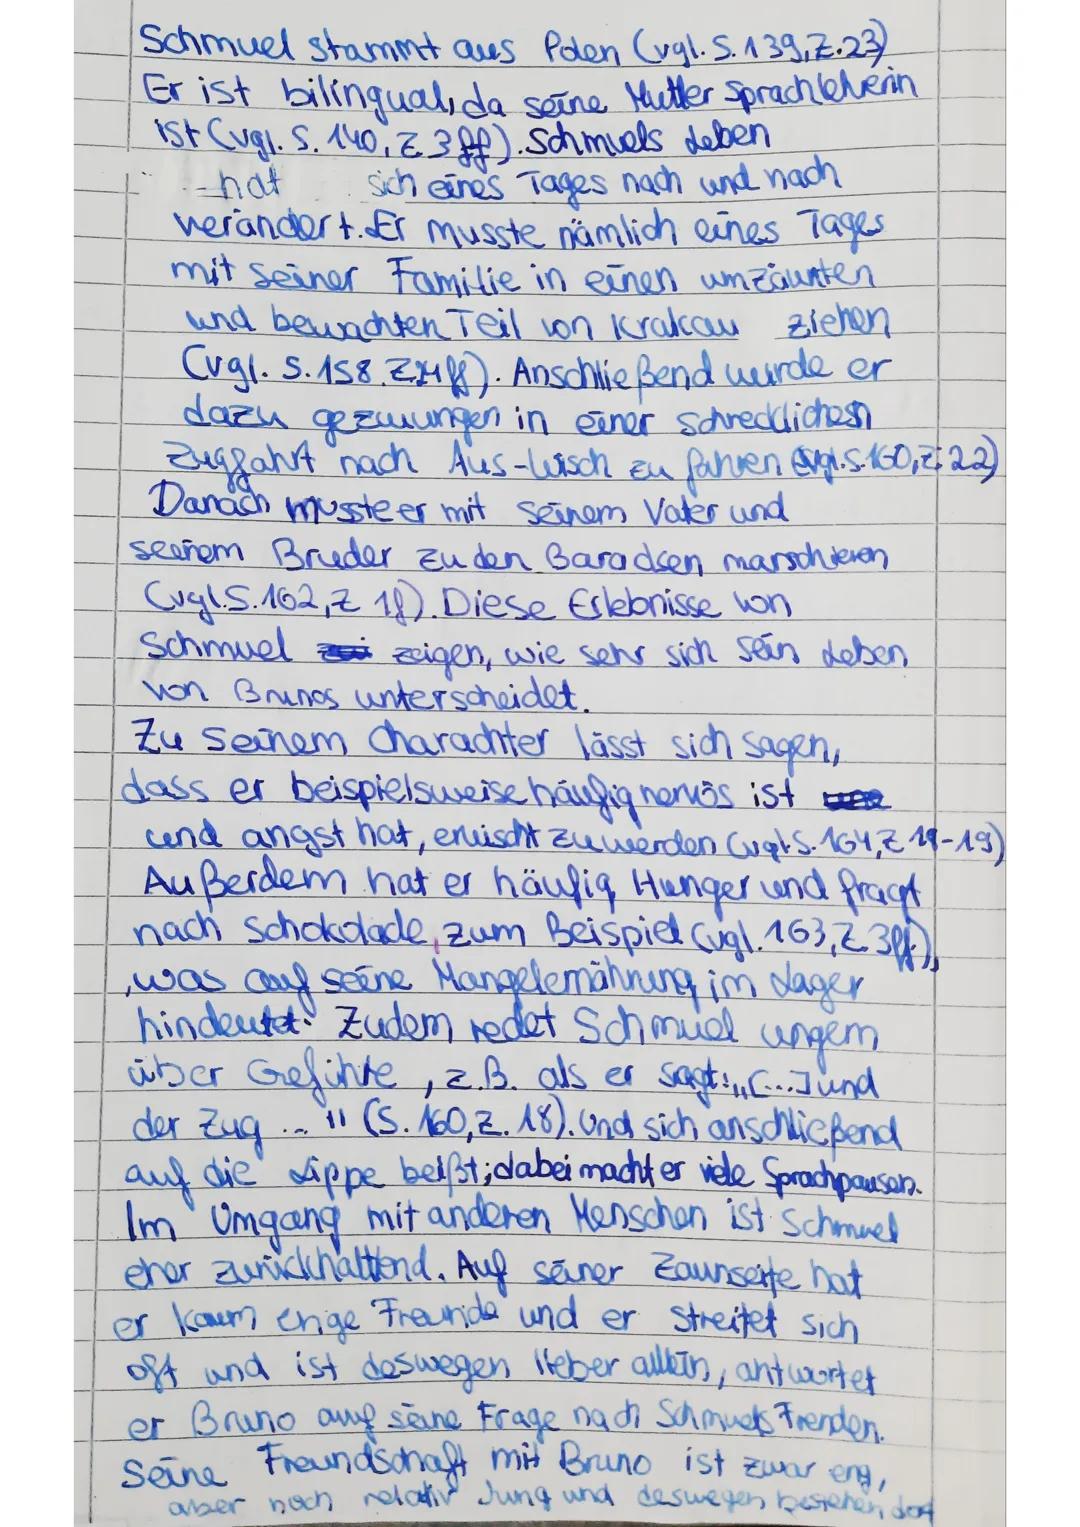 Schmuel stammt aus Polen (vgl. S. 139, Z. 23)
Er ist bilingual, da seine Mutter Sprachlehrerin
ist (vgl. S. 140, Z 3 ff). Schmuels Leben
hat sich eines Tages nach und nach
verändert. Er musste nämlich eines Tages
mit seiner Familie in einen umzäunten
und bewachten Teil von Krakau ziehen
(vgl. S. 158 Z ff). Anschließend wurde er
dazu gezwungen in einer schrecklichen
Zugfahrt nach Aus-Wisch zu fahren (vgl. S. 160, Z. 22)
Danach musste er mit seinem Vater und
seinem Bruder zu den Baracken marschieren
(vgl. S. 162, Z 1f). Diese Erlebnisse von
Schmuel zeigen, wie sehr sich sein Leben
von Brunos unterscheidet.
Zu seinem Charachter lässt sich sagen,
dass er beispielsweise häufig nervös ist
und angst hat, erwischt zu werden (vgl. S. 164, Z -19)
Außerdem hat er häufig Hunger und fragt
nach Schokolade, zum Beispiel (vgl. 163, Z. 3ff),
, was auf seine Mangelernährung im Lager
hindeutet. Zudem redet Schmuel ungern
über Gefühle, z.B. als er sagt: „[...] und
der Zug ... " (S. 160, Z. 18). Und sich anschließend
auf die Lippe beißt; dabei macht er viele Sprachpausen.
Im Umgang mit anderen Menschen ist Schmuel
eher zurückhaltend. Auf seiner Zaunseite hat
er kaum enge Freunde und er streitet sich
oft und ist deswegen lieber allein, antwortet
er Bruno auf seine Frage nach Schmuels Freunden.
Seine Freundschaft mit Bruno ist zwar eng,
aber noch relativ jung und deswegen bestehen dort